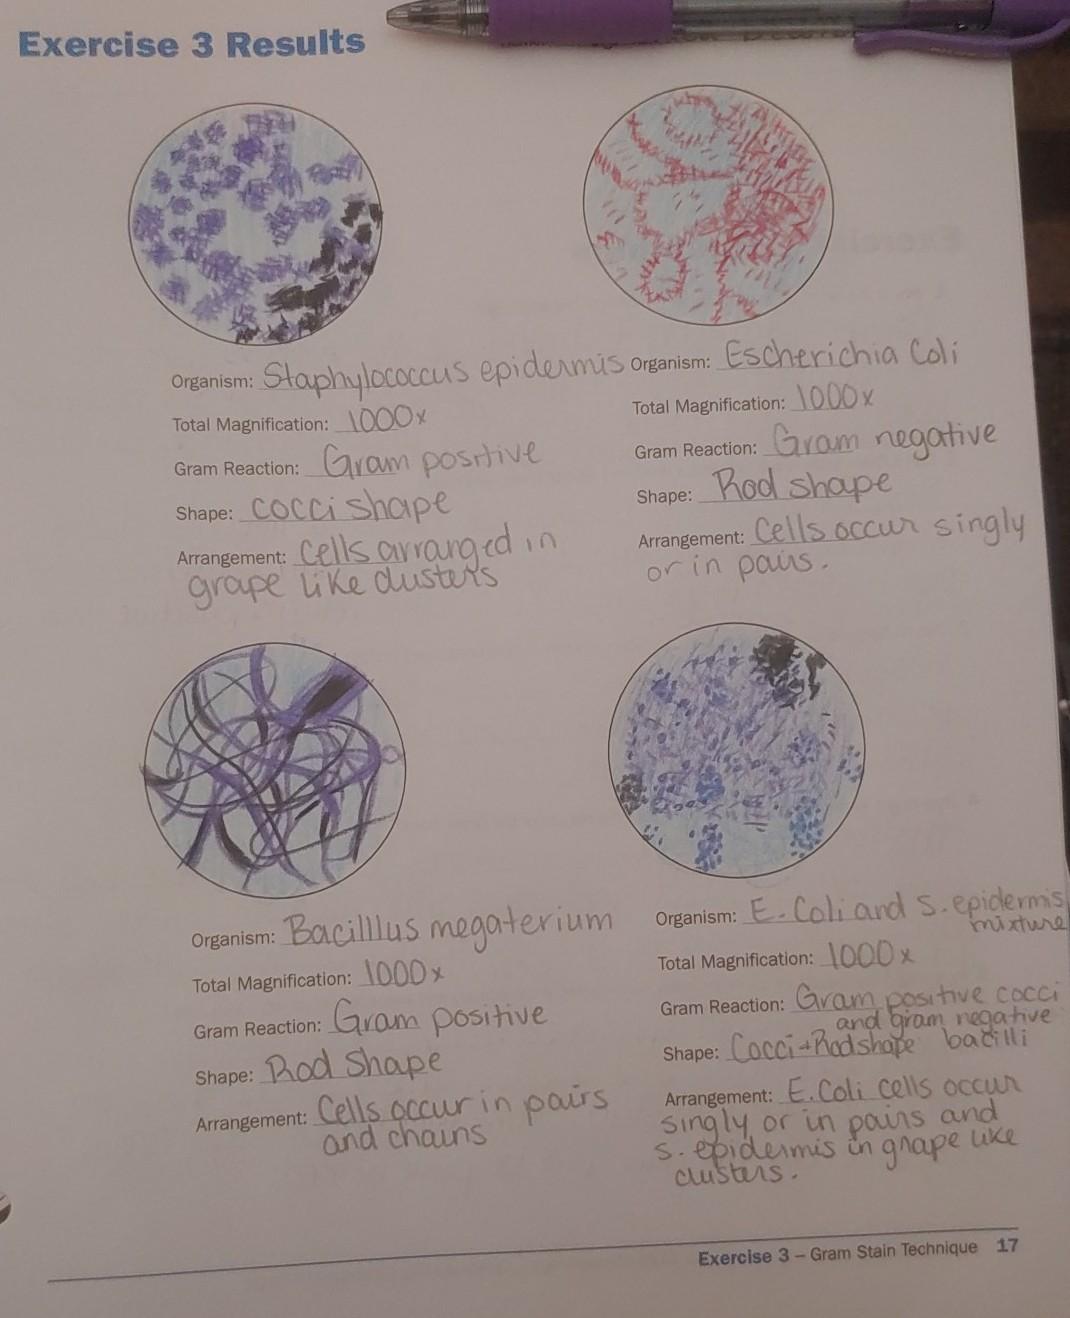 Exercise 3 Results
Organism: Staphylococcus epidermis
Total Magnification: 1000x
Gram Reaction: Gram positive
Shape: cocci shape
Arrangement: cells arranged in
grape like clusters
Organism: Escherichia Coli
Total Magnification: 1000x
Gram Reaction: Gram negative
Shape: Rod shape
Arrangement: Cells occur singly
or in pairs.
Organism: Bacilllus megaterium
Total Magnification: 1000x
Gram Reaction: Gram positive
Shape: Rod Shape
Arrangement: Cells occur in pairs
and chains
Organism: E. Coli and S. epidermis
mixture
Total Magnification: 1000x
Gram Reaction: Gram positive cocci
and gram negative
Shape: Cocci + Rod shape bacilli
Arrangement: E. Coli cells occur
singly or in pairs and
s. epidermis in grape like
clusters.
Exercise 3 – Gram Stain Technique 17